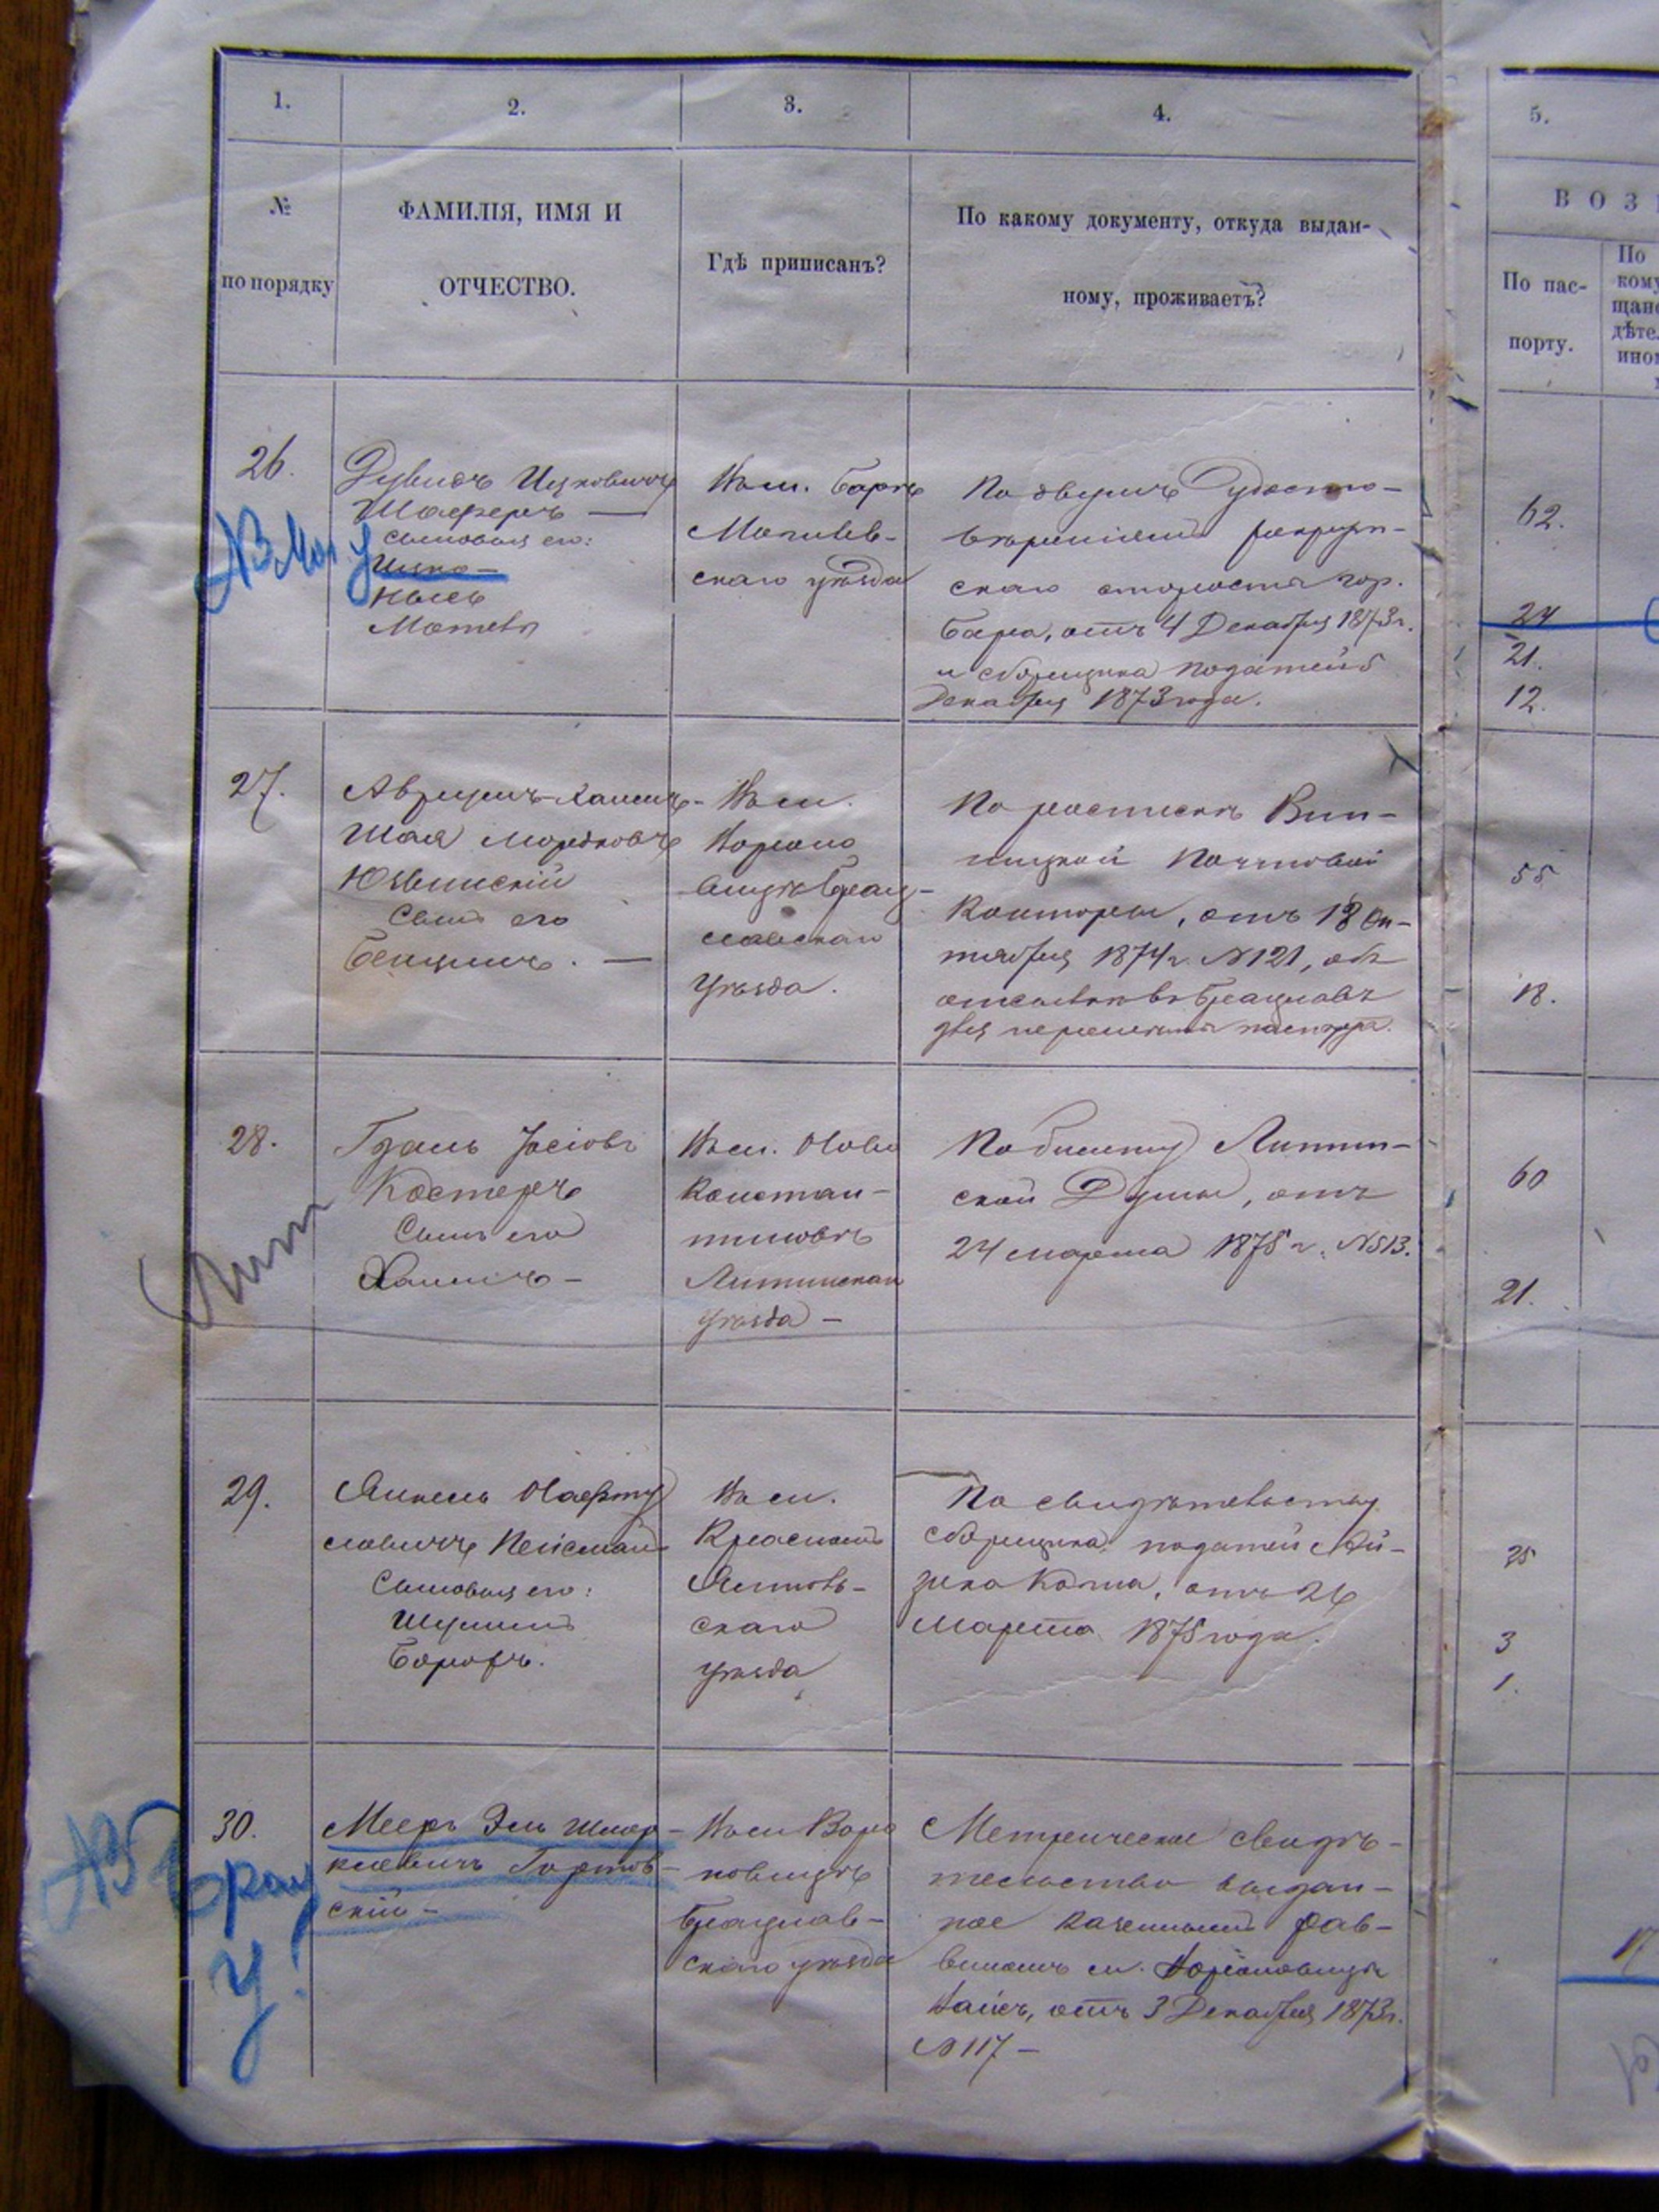 1.
2.
3.
4.
5.
№
по порядку
ФАМИЛІЯ, ИМЯ И
ОТЧЕСТВО.
Гдѣ приписанъ?
По какому документу, откуда выдан-
ному, проживаетъ?
В О З
По пас-
порту.
По
кому
щан
дѣте
ино
26.
Ицковичъ
Шаферъ —
сыновья его:
Ицко —
Мошко
Могилев-
скаго уѣзда
По двумъ Удосто-
вереніямъ рекрут-
скаго старосты гор.
Бара, отъ 4 Декабря 1873 г.
и сборщика податей 5
Декабря 1873 года.
62.
24
21.
12.
27.
Аврумъ-Хаимъ-
Шая Мордковъ
Сынъ его
Бенціинъ. —
Въ м.
Вороно
вицѣ Брац-
лавскаго
Уѣзда.
По роспискѣ Вин-
ницкой Почтовой
Конторы, отъ 18 Ок-
тября 1874 г. № 121, объ
отсылкѣ въ Брацлавъ
для перемены паспорта.
55
18.
28.
Лит
Іосіовъ
Костеръ
Сынъ его
Хаимъ —
Въ м. Ново
Констан-
тиновѣ
Литинскаго
Уѣзда —
По билету Литин-
ской Думы, отъ
24 марта 1875 г. № 513.
60
21.
29.
Янкель Нафту
ловичъ Пейсман
Сыновья его:
Шулимъ
Борохъ.
Въ м.
Красномъ
Ямполь-
скаго
уѣзда
По свидѣтельству
сборщика податей Ай-
зика Когана, отъ 26
Марта 1875 года.
25
3
1.
30.
Брац
У!
Мееръ Эль Шмер-
ковичъ
скій —
Въ м Воро
новицѣ
Брацлав-
скаго уѣзда
Метрическое свидѣ-
тельство выдан-
ное казеннымъ Рав-
виномъ м. Вороновицы
отъ 3 Декабря 1873 г.
№ 117 —
17